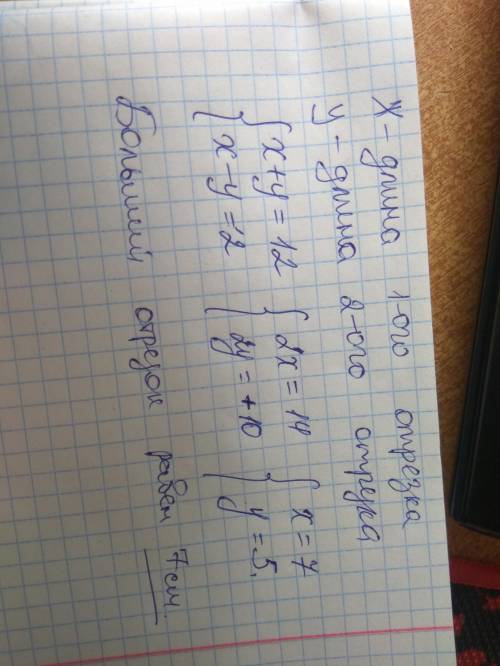 x - длина 1-ого отрезка
y - длина 2-ого отрезка
{ x + y = 12 { 2x = 14 { x = 7
{ x - y = 2 { 2y = + 10 { y = 5.
Больший отрезок равен 7 см.